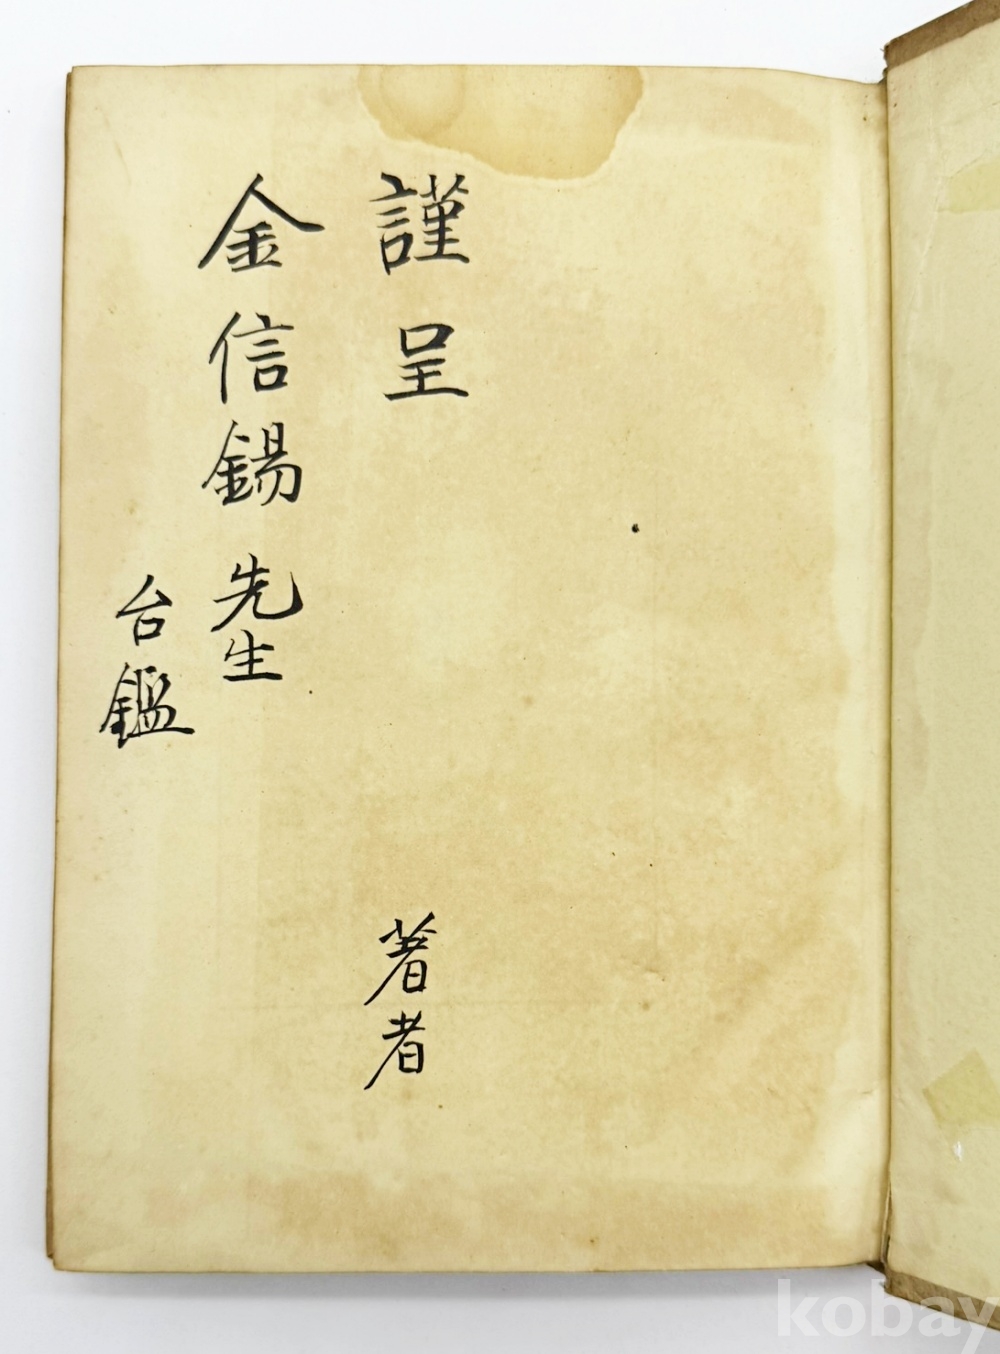 謹呈
著者
金信錫先生
台鑑
kobay